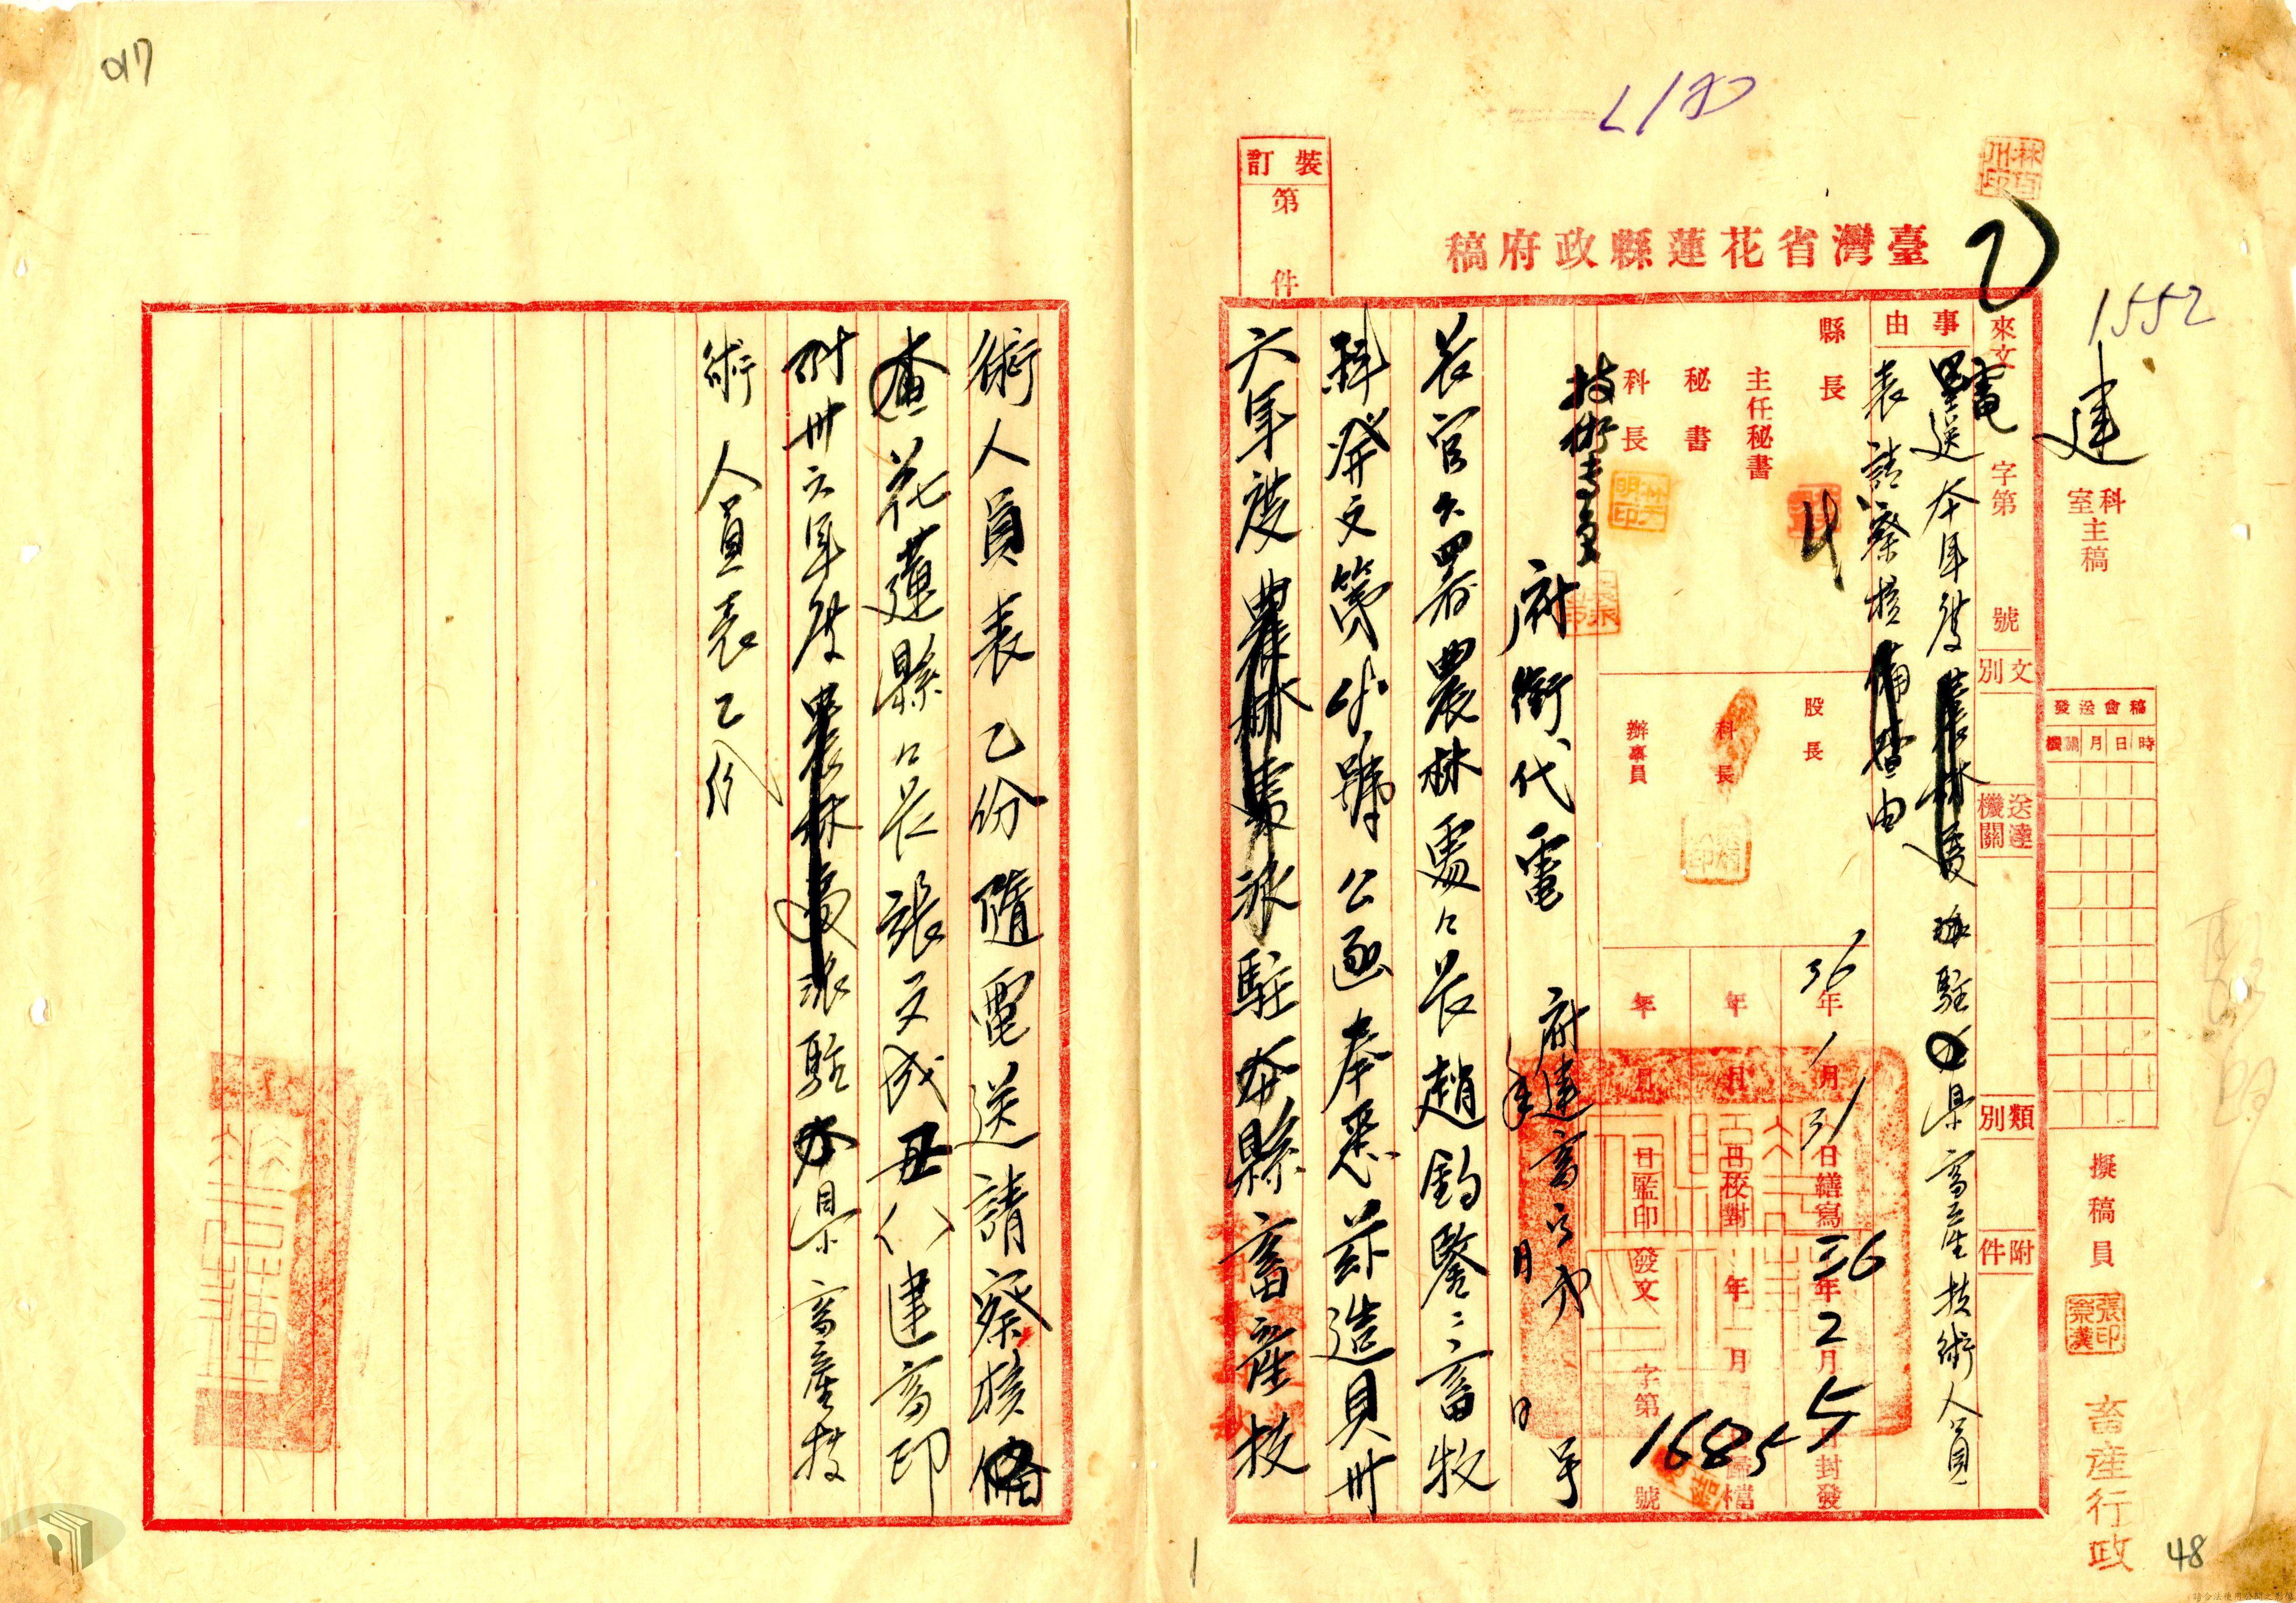 017
1552
裝訂
第
件
臺灣省花蓮縣政府稿
建
科室主稿
擬稿員
畜產行政
48
稿會送發
機關 月 日 時
來文
字第
號
文別
送達機關
類別
附件
事由
電送本年度
駐縣畜產技術人員
表請察核備查由
縣長
主任秘書
秘書
科長
技術專員
股長
科長
辦事員
36年1月31日繕寫
36年2月5日封發
年月日校對
年月日歸檔
年月日監印
發文
字第16855號
府銜代電
府建畜
年月日
號
長官公署農林處處長趙鈞鑒畜牧
科發文第
號公函奉悉茲造具卅
六年度農林處派駐本縣畜產技
術人員表乙份隨電送請察核備
查花蓮縣縣長張文成丑
建畜印
附卅六年度農林處派駐本縣畜產技
術人員表乙份